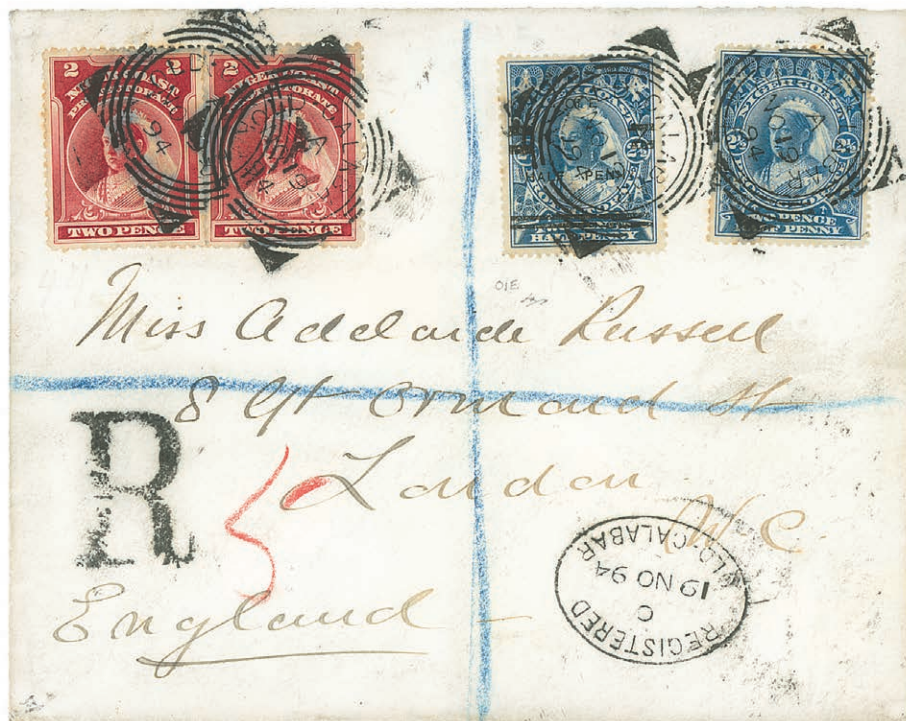 2 2
NIGER COAST
PROTECTORATE
TWO PENCE
2 2
NIGER COAST
PROTECTORATE
TWO PENCE
NIGER COAST
HALF PENNY
HALF PENNY
NIGER COAST
TWO PENCE
HALF PENNY
OLD CALABAR
NO 19
94
O1E
Miss Adelaide Russell
8 Gt Ormond St
London
W.C.
R
5
England
REGISTERED
C
19 NO 94
OLD-CALABAR